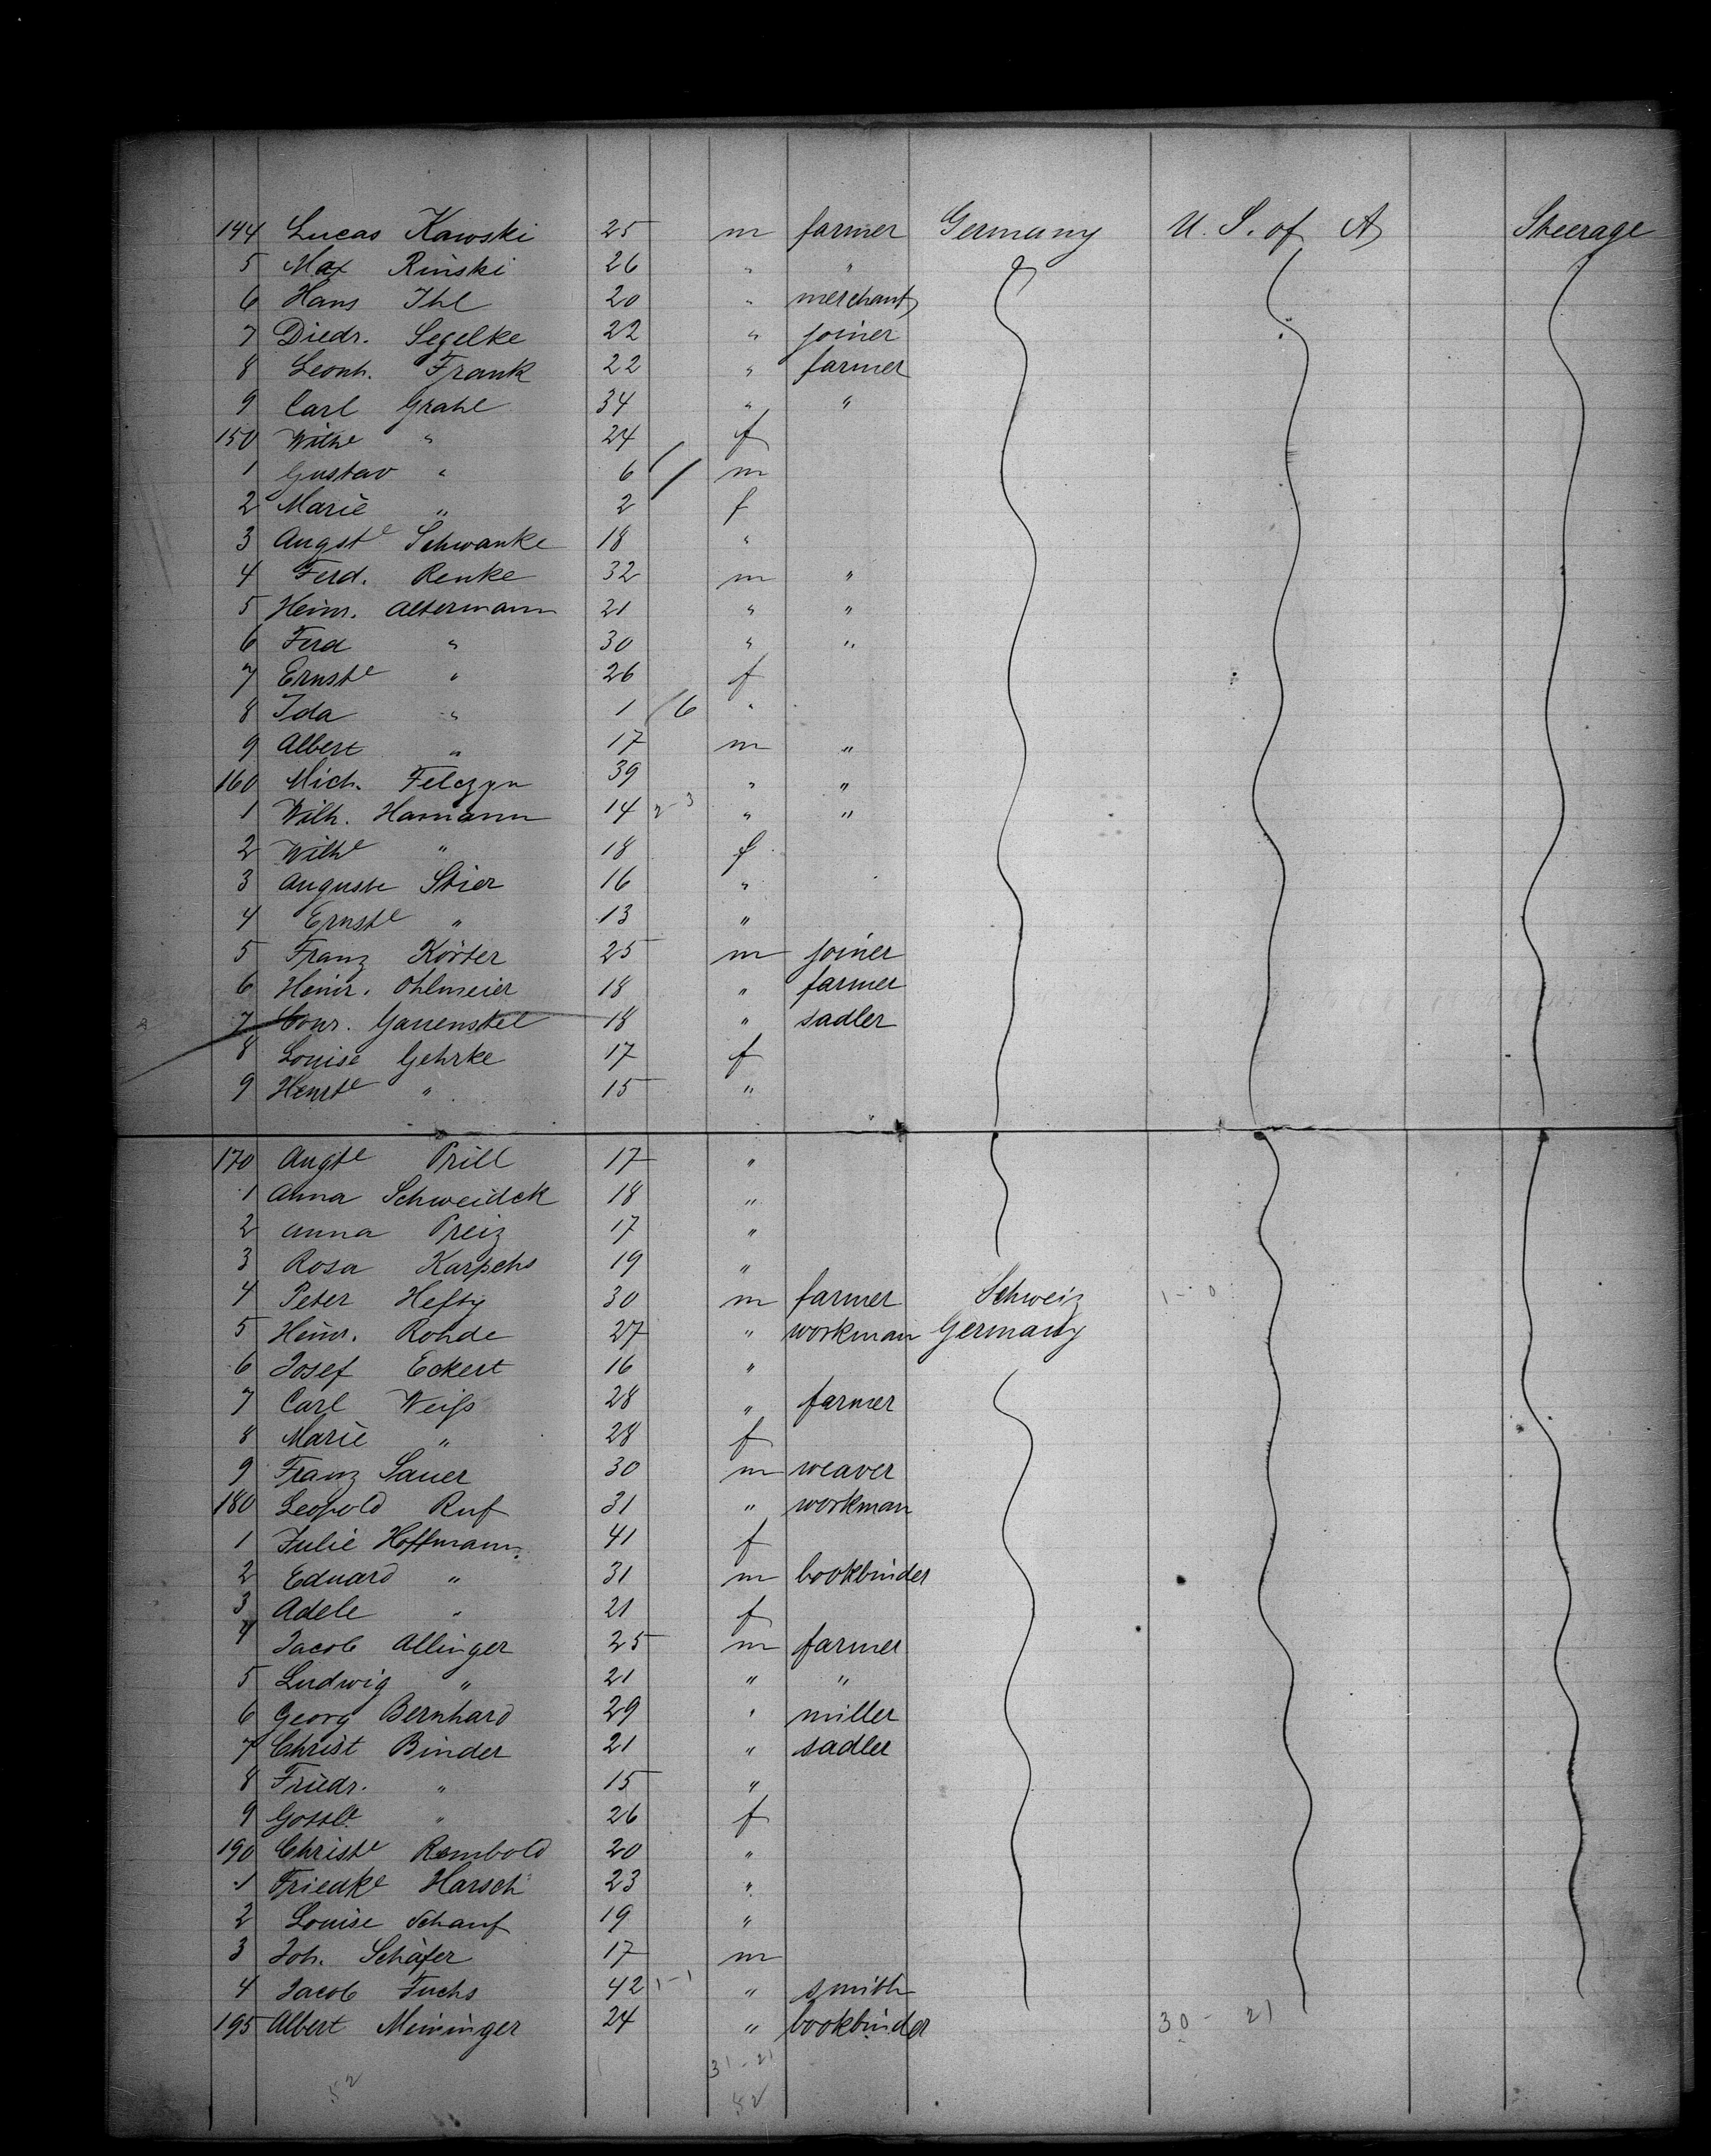 144 Lucas Kawski 25 m farmer Germany U. S. of A Steerage
5 Max Rinski 26 " "
6 Hans Ihl 20 " merchant
7 Diedr. Segelke 22 " joiner
8 Leonh. Frank 22 " farmer
9 Carl Grahl 34 " "
150 Wilhe " 24 f
1 Gustav " 6 m
2 Marie " 2 f
3 Augste Schwanke 18 "
4 Ferd. Renke 32 m "
5 Heinr. Altermann 21 " "
6 Ferd " 30 " "
7 Ernste " 26 f
8 Ida " 1 /6 "
9 Albert " 17 m "
160 Mich. Felczyn 39 " "
1 Wilh. Hamann 14 2-3 " "
2 Wilhe " 18 f
3 Auguste Stier 16 "
4 Ernste " 13 "
5 Franz Körter 25 m joiner
6 Heinr. Ohlmeier 18 " farmer
7 Conr. Gauenstel 18 " sadler
8 Louise Gehrke 17 f
9 Henrte " 15 "
170 Augte Prill 17 "
1 Anna Schweidek 18 "
2 Anna Preiz 17 "
3 Rosa Karpchs 19 "
4 Peter Hefty 30 m farmer Schweiz 1-0
5 Heinr. Rohde 27 " workman Germany
6 Josef Eckert 16 "
7 Carl Weiß 28 " farmer
8 Marie " 28 f
9 Franz Sauer 30 m weaver
180 Leopold Ruf 31 " workman
1 Julie Hoffmann 41 f
2 Eduard " 31 m bookbinder
3 Adele " 21 f
4 Jacob Allinger 25 m farmer
5 Ludwig " 21 " "
6 Georg Bernhard 29 " miller
7 Christ Binder 21 " sadler
8 Friedr. " 15 "
9 Gottle " 26 f
190 Christe Rembold 20 "
1 Friedke Harsch 23 "
2 Louise Schauf 19 "
3 Joh. Schäfer 17 m
4 Jacob Fuchs 42 1-1 " smith
195 Albert Meininger 24 " bookbinder 30 - 21
31-21
52 52